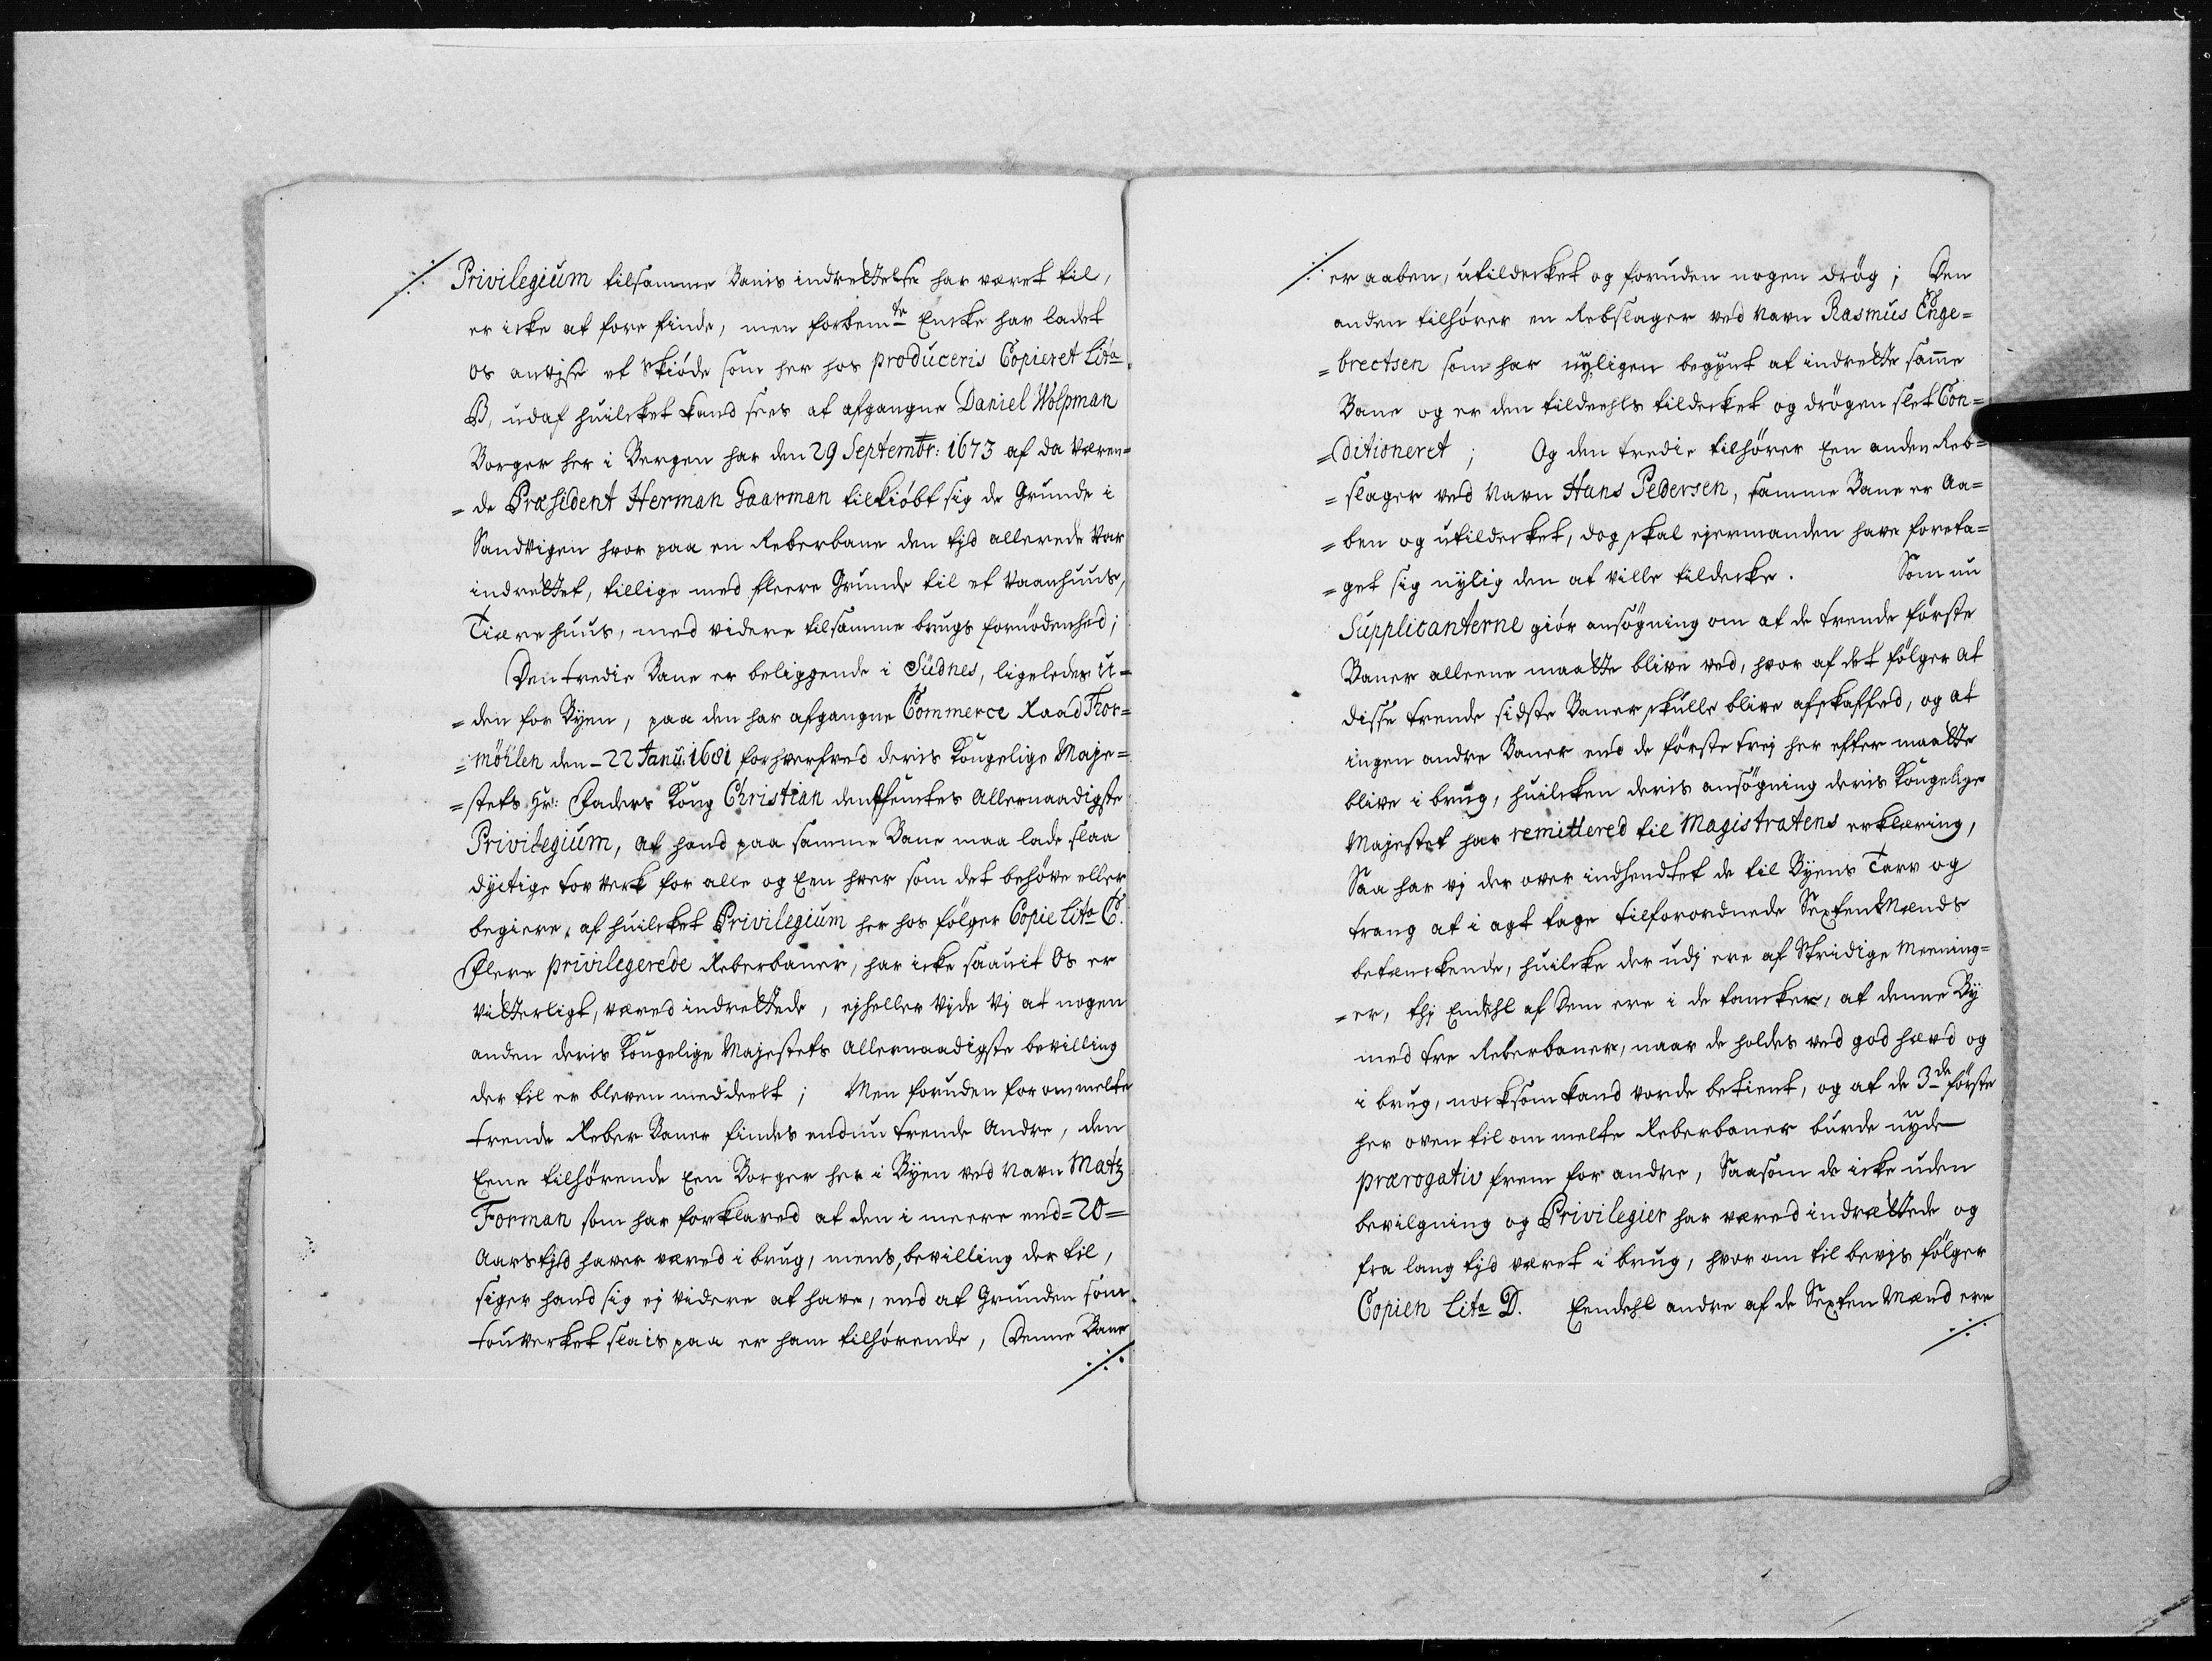 Privilegium tilsamme Banis indrettelse har været til,
er icke at fore finde, men forbemte Encke har ladet
os anvjse et Skiöde som her hos produceris Copieret Lita
B, udaf huilcket kand sees at afgangne Daniel Wolpman
Borger her i Bergen har den 29 Septembr: 1673 af da Væren=
=de Præsident Herman Gaarman tilkiöbt sig de Grunde i
Sandvigen hvor paa en Reberbane den tjd allerede var
indrettet, tillige med fleere Grunde til et Vaanhuus,
Tiærehuus, med videre tilsamme brugs fornödenhed;
Den tredie Bane er beliggende i Südnes, ligeledes u=
=den for Byen, paa den har afgangne Commerce Raad Thor=
=möhlen den 22 Janu: 1681 forhverfved deris Kongelige Maje=
=stets Hr: Faders Kong Christian den femtes Allernaadigste
Privilegium, at hand paa samme Bane maa lade slaa
dyctige tov verk for alle og Een hver som det behöve eller
begiere, af huilcket Privilegium her hos fölger Copie Lita C.
Flere privilegerede Reberbaner, har icke saavit Os er
vitterligt, været indrettede, ejheller Vjde Vj at nogen
anden deris Kongelige Majestets Allernaadigste bevilling
der til er bleven meddeelt; Men foruden for ommelte
trende Reber Baner findes endnu trende Andre, den
Eene tilhörende Een Borger her i Byen ved Navn Matz
Forman som har forklared at den i meere end =20=
Aars tjd haver været i brug, mens, bevilling der til,
siger hand sig ej videre at have, end at Grunden som
touverket slais paa er ham tilhörende, Denne Bane
er aaben, utildecket og foruden nogen drög; Den
anden tilhører en Rebslager ved Navn Rasmus Enge=
=brectsen som har nyligen begynt at indrette samme
Bane og er den tildeehls tildecket og drögen slet Con=
=ditioneret; Og den tredie tilhörer Een anden Reb=
=slager ved Navn Hans Pedersen, samme Bane er Aa=
=ben og utildecket, dog skal ejermanden have foreta=
=get sig nylig den at ville tildecke. Som nu
Supplicanterne giör ansögning om at de trende förste
Baner alleene maatte blive ved, hvor af det fölger at
disse trende sidste Baner skulle blive afskaffed, og at
ingen andre Baner end de förste trej her efter maatte
blive i brug, huilcken deris ansögning deris Kongelige
Majestet har remittered til Magistratens erklæring,
Saa har vj der over indhendtet de til Byens Tarv og
trang at i agt tage tilforordnede Sexten Mænds
betænckende, huilcke der udj ere af Stridige Meening=
=er, thj Endehl af Dem ere i de tancker, at denne By
med tre Reberbaner, naar de holdes ved god hævd og
i brug, nocksom kand vorde betient, og at de 3de förste
her oven til om melte Reberbaner burde nyde
prærogativ frem for andre, Saasom de icke uden
bevilgning og Privilegier har været indrættede og
fra lang tjd været i brug, hvor om til bevjs fölger
Copien Lita D. Eendehl andre af de Sexten Mænd ere